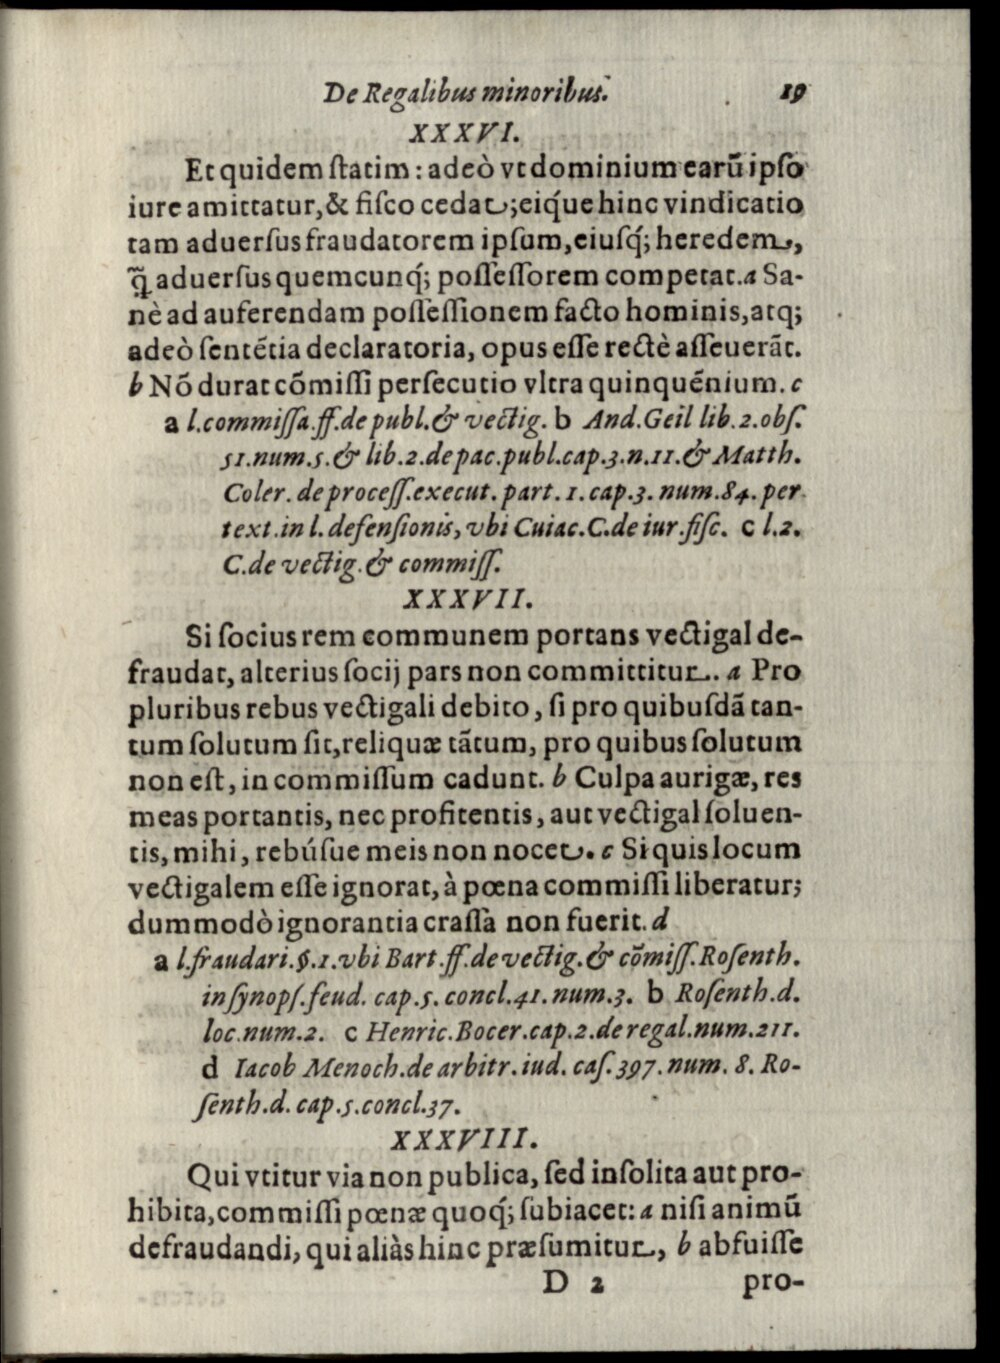 De Regalibus minoribus. 19
XXXVI.
Et quidem ſtatim: adeò vt dominium earũ ipſo
iure amittatur, & fiſco cedat; eiq́ue hinc vindicatio
tam aduerſus fraudatorem ipſum, eiuſq́; heredem,
q̃ aduerſus quemcunq́; poſſeſſorem competat. a Sa-
nè ad auferendam poſſeſſionem facto hominis, atq;
adeò ſentẽtia declaratoria, opus eſſe rectè aſſeuerãt.
b Nõ durat cõmiſſi perſecutio vltra quinquẽnium. c
a l. commiſſa. ff. de publ. & vectig. b And. Geil lib. 2. obſ.
51. num. 5. & lib. 2. de pac. publ. cap. 3. n. 11. & Matth.
Coler. de proceſſ. execut. part. 1. cap. 3. num. 84. per
text. in l. defenſionis, vbi Cuiac. C. de iur. fiſc. c l. 2.
C. de vectig. & commiſſ.
XXXVII.
Si ſocius rem communem portans vectigal de-
fraudat, alterius ſocij pars non committitur. a Pro
pluribus rebus vectigali debito, ſi pro quibuſdã tan-
tum ſolutum ſit, reliquæ tãtum, pro quibus ſolutum
non eſt, in commiſſum cadunt. b Culpa aurigæ, res
meas portantis, nec profitentis, aut vectigal ſoluen-
tis, mihi, rebúſue meis non nocet. c Si quis locum
vectigalem eſſe ignorat, à pœna commiſſi liberatur;
dummodò ignorantia craſſà non fuerit. d
a l. fraudari. §. 1. vbi Bart. ff. de vectig. & cõmiſſ. Roſenth.
in ſynopſ. feud. cap. 5. concl. 41. num. 3. b Roſenth. d.
loc. num. 2. c Henric. Bocer. cap. 2. de regal. num. 211.
d Iacob Menoch. de arbitr. iud. caſ. 397. num. 8. Ro-
ſenth. d. cap. 5. concl. 37.
XXXVIII.
Qui vtitur via non publica, ſed inſolita aut pro-
hibita, commiſſi pœnæ quoq́; ſubiacet: a niſi animũ
defraudandi, qui aliàs hinc præſumitur, b abfuiſſe
D 2 pro-